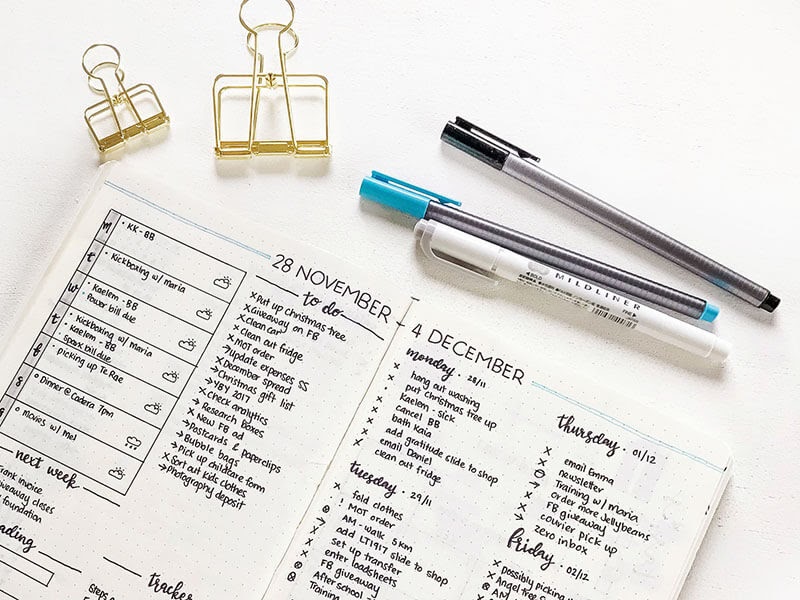 m • KK - BB
t • Kickboxing w/ Maria
w • Kaelem - BB
Power bill due
t • Kickboxing w/ Maria
Kaelem - BB
Spark bill due
f picking up Te Rae
s Dinner @ Cadera 7pm
s movies w/ Mel
next week
frank invoice
giveaway closes
foundation
tracker
28 NOVEMBER
to do
× Put up christmas tree
× Giveaway on FB
× clean car
× clean out fridge
× MOT order
→ Update expenses $$
× December spread
→ Christmas gift list
→ YBY 2017
× Check analytics
> Research boxes
× New FB ad
→ Postcards & paperclips
• Bubble bags
> Pick up childcare form
× Sort out kids clothes
→ Photography deposit
4 DECEMBER
monday • 28/11
× hang out washing
× put christmas tree up
× Kaelem - sick
× cancel BB
× bath Kaia
× add gratitude slide to shop
× email Daniel
× clean out fridge
tuesday • 29/11
× fold clothes
> MOT order
AM - walk 5km
add LT1917 slide to shop
set up transfer
enter loadsheets
FB giveaway
After school
Training
thursday • 01/12
× email Emma
newsletter
Training w/ maria
→ order more Jellybeans
× FB giveaway
× courier pick up
> zero inbox
friday • 02/12
× Possibly picking
× Angel tree
AM
MILDLINER
BOLD
FINE